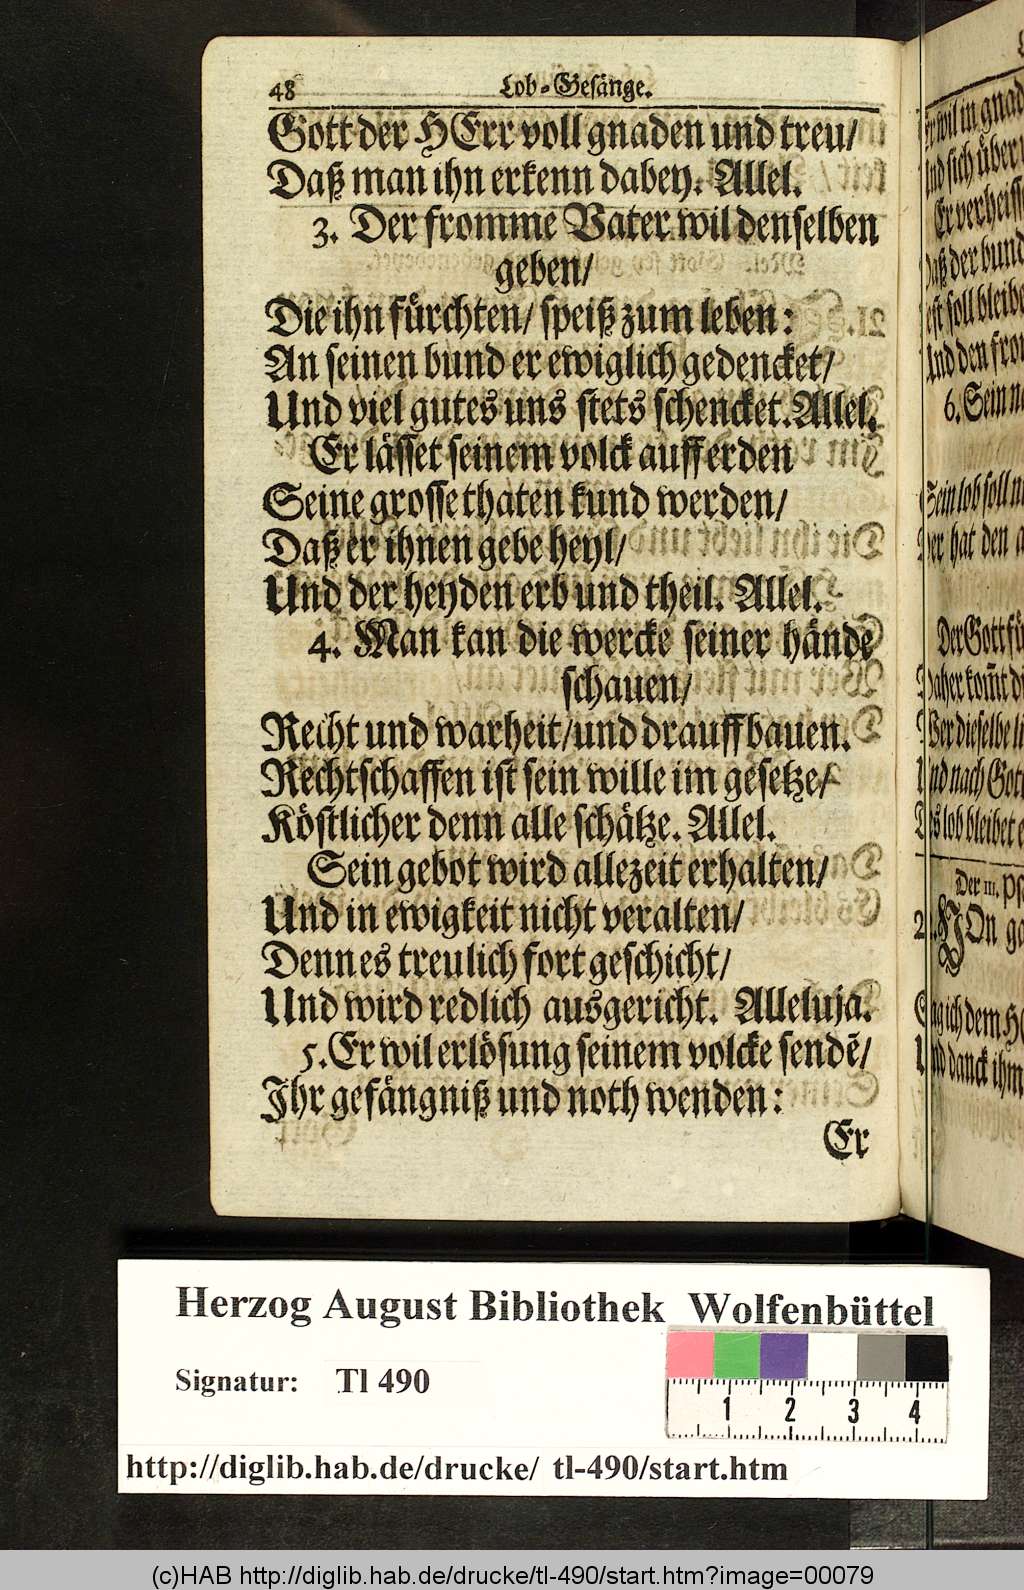 48 Lob-Gesänge.
Gott der HErr voll gnaden und treu/
Daß man ihn erkenn dabey. Allel.
3. Der fromme Vater wil denselben
geben/
Die ihn fürchten/ speiß zum leben:
An seinen bund er ewiglich gedencket/
Und viel gutes uns stets schencket. Allel.
Er lässet seinem volck auff erden
Seine grosse thaten kund werden/
Daß er ihnen gebe heyl/
Und der heyden erb und theil. Allel.
4. Man kan die wercke seiner hände
schauen/
Recht und warheit/und drauff bauen.
Rechtschaffen ist sein wille im gesetze/
Köstlicher denn alle schätze. Allel.
Sein gebot wird allezeit erhalten/
Und in ewigkeit nicht veralten/
Denn es treulich fort geschicht/
Und wird redlich ausgericht. Alleluja.
5. Er wil erlösung seinem volcke sendē/
Ihr gefängniß und noth wenden:
Er
wil in gnad
sich über
Er verheiss
der bund
soll bleibe
Und den fro
6. Sein n
Sein lob soll n
hat den
Der Gott fü
kom̃t d
dieselbe
nach Gott
lob bleibet
Der III. Ps
On
ich dem H
danck ihm
Herzog August Bibliothek Wolfenbüttel
Signatur: Tl 490
1 2 3 4
http://diglib.hab.de/drucke/ tl-490/start.htm
(c)HAB http://diglib.hab.de/drucke/tl-490/start.htm?image=00079